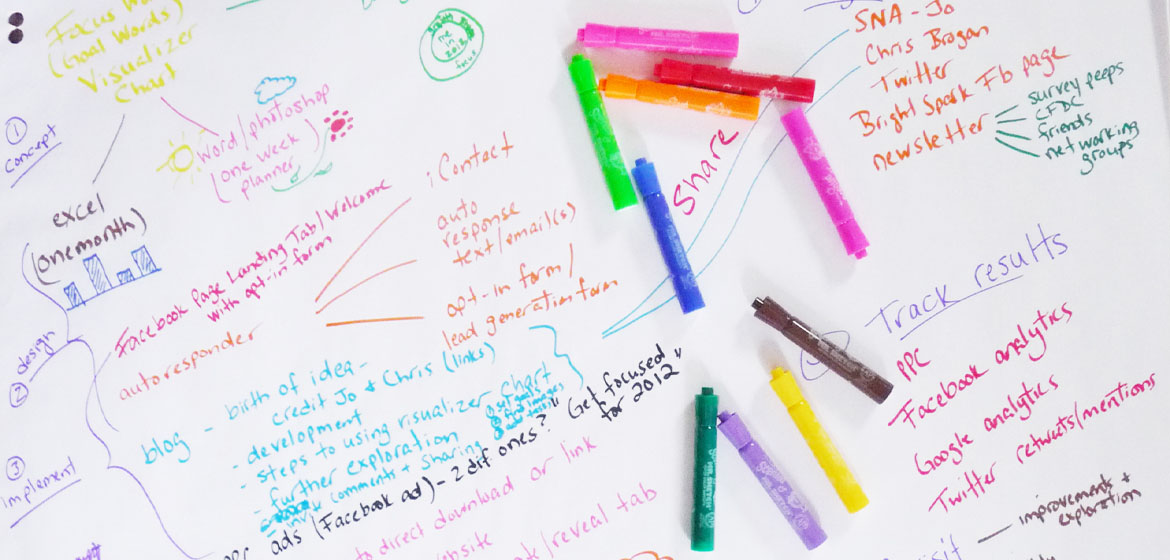 Focus
(Goal Words)
Visualizer
Chart
me
in
2012
focus
①
concept
Word/photoshop
(one week)
planner
excel
(one month)
② design
Facebook Page Landing Tab/Welcome
with opt-in form
autoresponder
iContact
auto
response
text/email(s)
opt-in form/
lead generation form
③
implement
blog
- birth of idea -
credit Jo + Chris (links)
- development
- steps to using visualizer chart
- further exploration
- invite comments + sharing
set goals
ads (Facebook ad) - 2 dif ones?
"Get focused
for 2012"
direct download or link
/reveal tab
Share
SNA - Jo
Chris Brogan
Twitter
Bright Spark Fb page
newsletter
survey peeps
CFDC
friends
networking
groups
Track results
PPC
Facebook analytics
Google analytics
Twitter retweets/mentions
improvements +
exploration